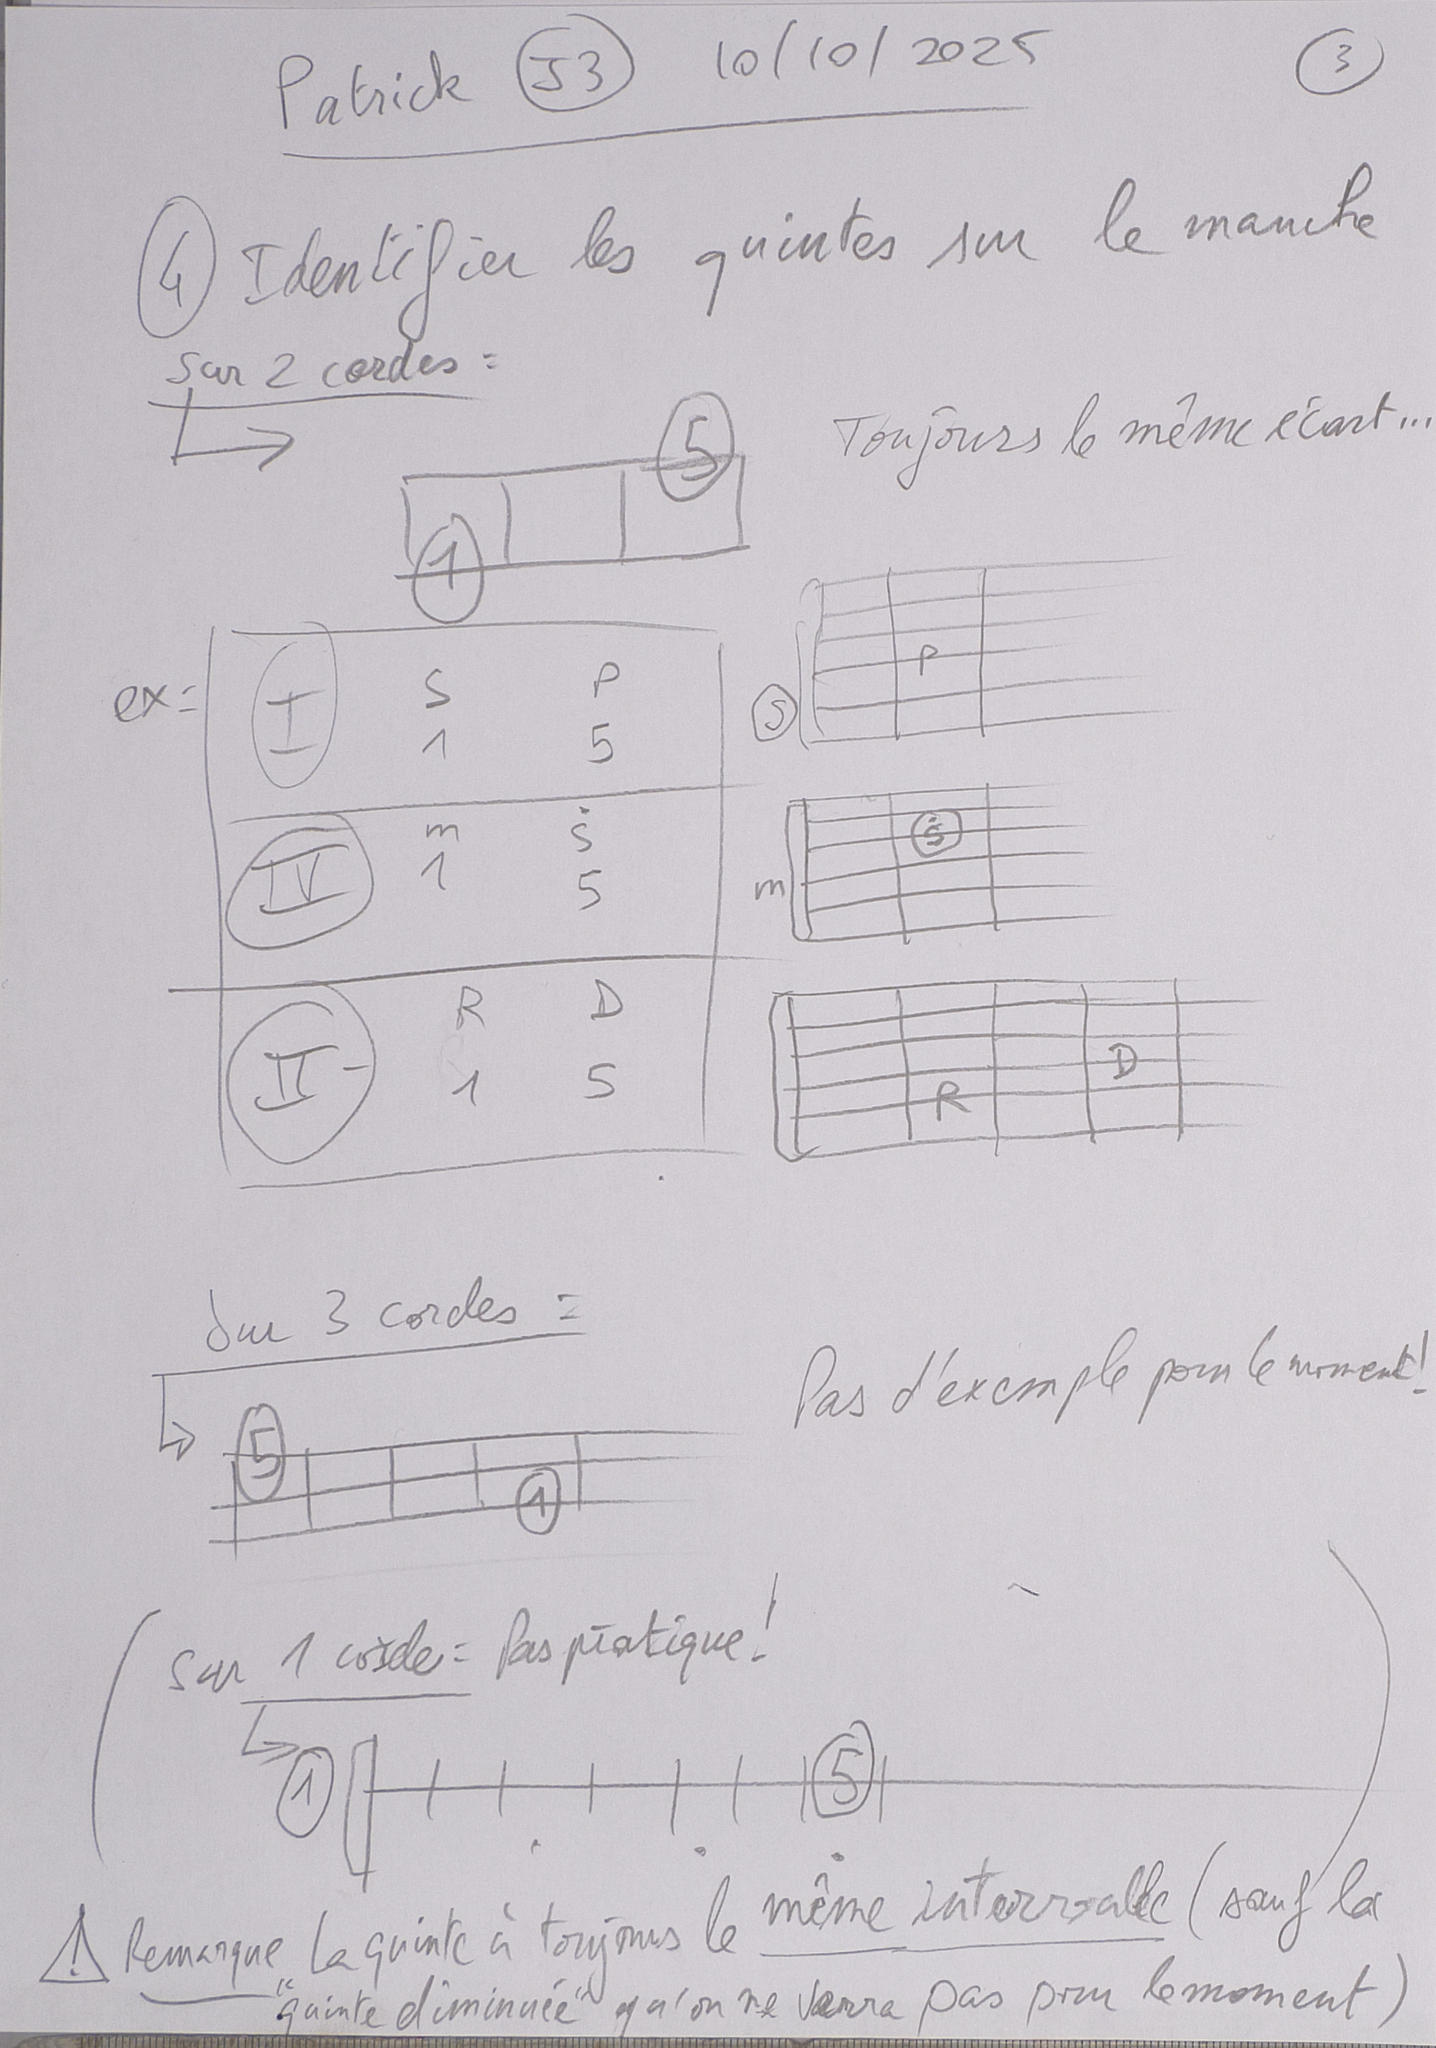 Patrick J3 10/10/2025 3
4 Identifier les quintes sur le manche
sur 2 cordes =
Toujours le même écart...
5
1
ex =
I S P
1 5
S P
IV m Ṡ
1 5
m Ṡ
II- R D
1 5
R D
Sur 3 cordes =
Pas d'exemple pour le moment!
5
1
Sur 1 corde = Pas pratique!
1 5
! Remarque La quinte à toujours le même intervalle (sauf la
"quinte diminuée" qu'on ne verra pas pour le moment)